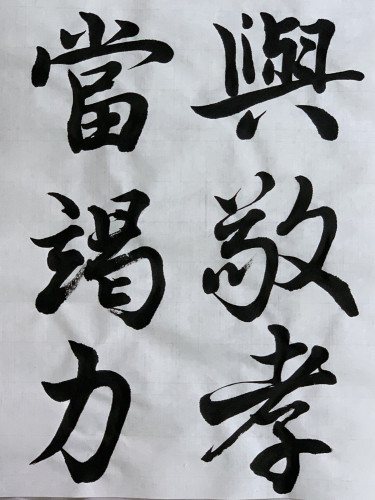 與敬孝
當竭力